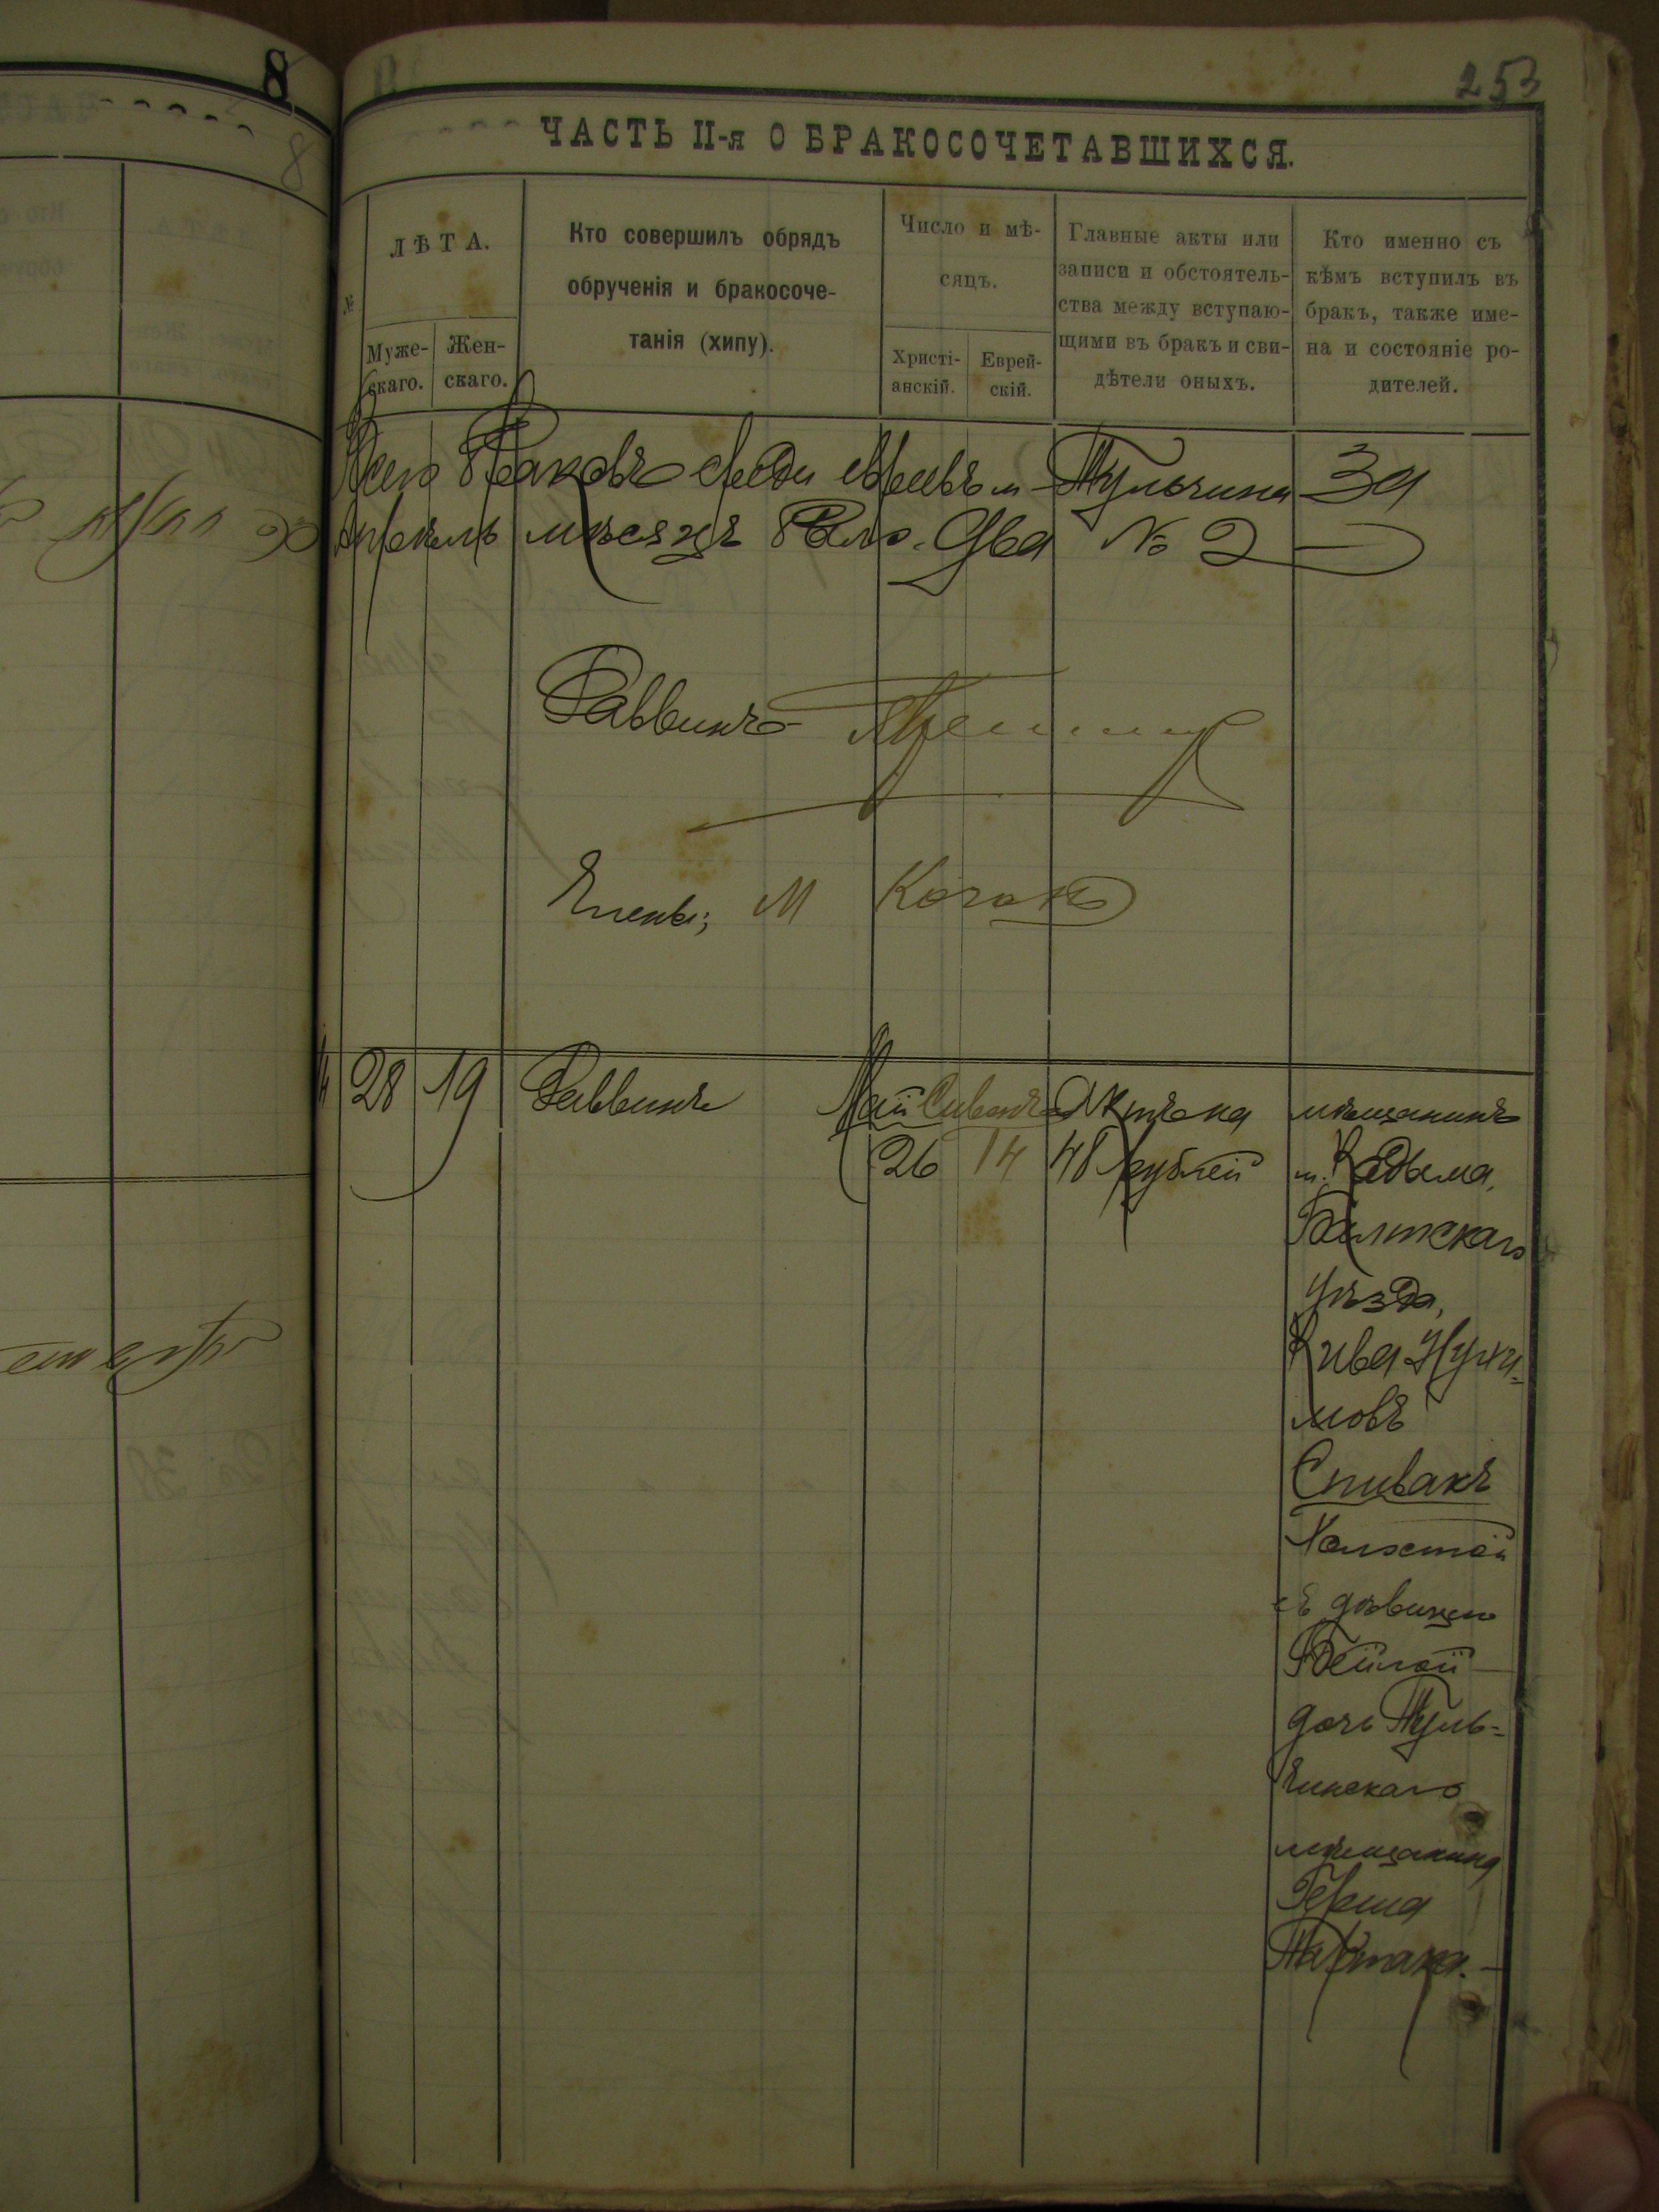 8
253
8
ЧАСТЬ II-я О БРАКОСОЧЕТАВШИХСЯ.
№
ЛѢТА.
Муже-
скаго.
Жен-
скаго.
Кто совершилъ обрядъ
обрученія и бракосоче-
танія (хипу).
Число и мѣ-
сяцъ.
Христі-
анскій.
Еврей-
скій.
Главные акты или
записи и обстоятель-
ства между вступаю-
щими въ бракъ и сви-
дѣтели оныхъ.
Кто именно съ
кѣмъ вступилъ въ
бракъ, также име-
на и состояніе ро-
дителей.
Всего браковъ среди евреевъ м Тульчина За
Апрель мѣсяцъ было Два № 2
Раввинъ
Члены; М Коганъ
28 19 Раввинъ Май Сиванъ Актъ на
26 14 48 рублей
мѣщанинъ
м. Кодыма,
Балтскаго
уѣзда,
Кива Нухи-
мовъ
Спивакъ
Холостой
съ дѣвицею
Бейлой
дочь Туль-
чинскаго
мѣщанина
Герша